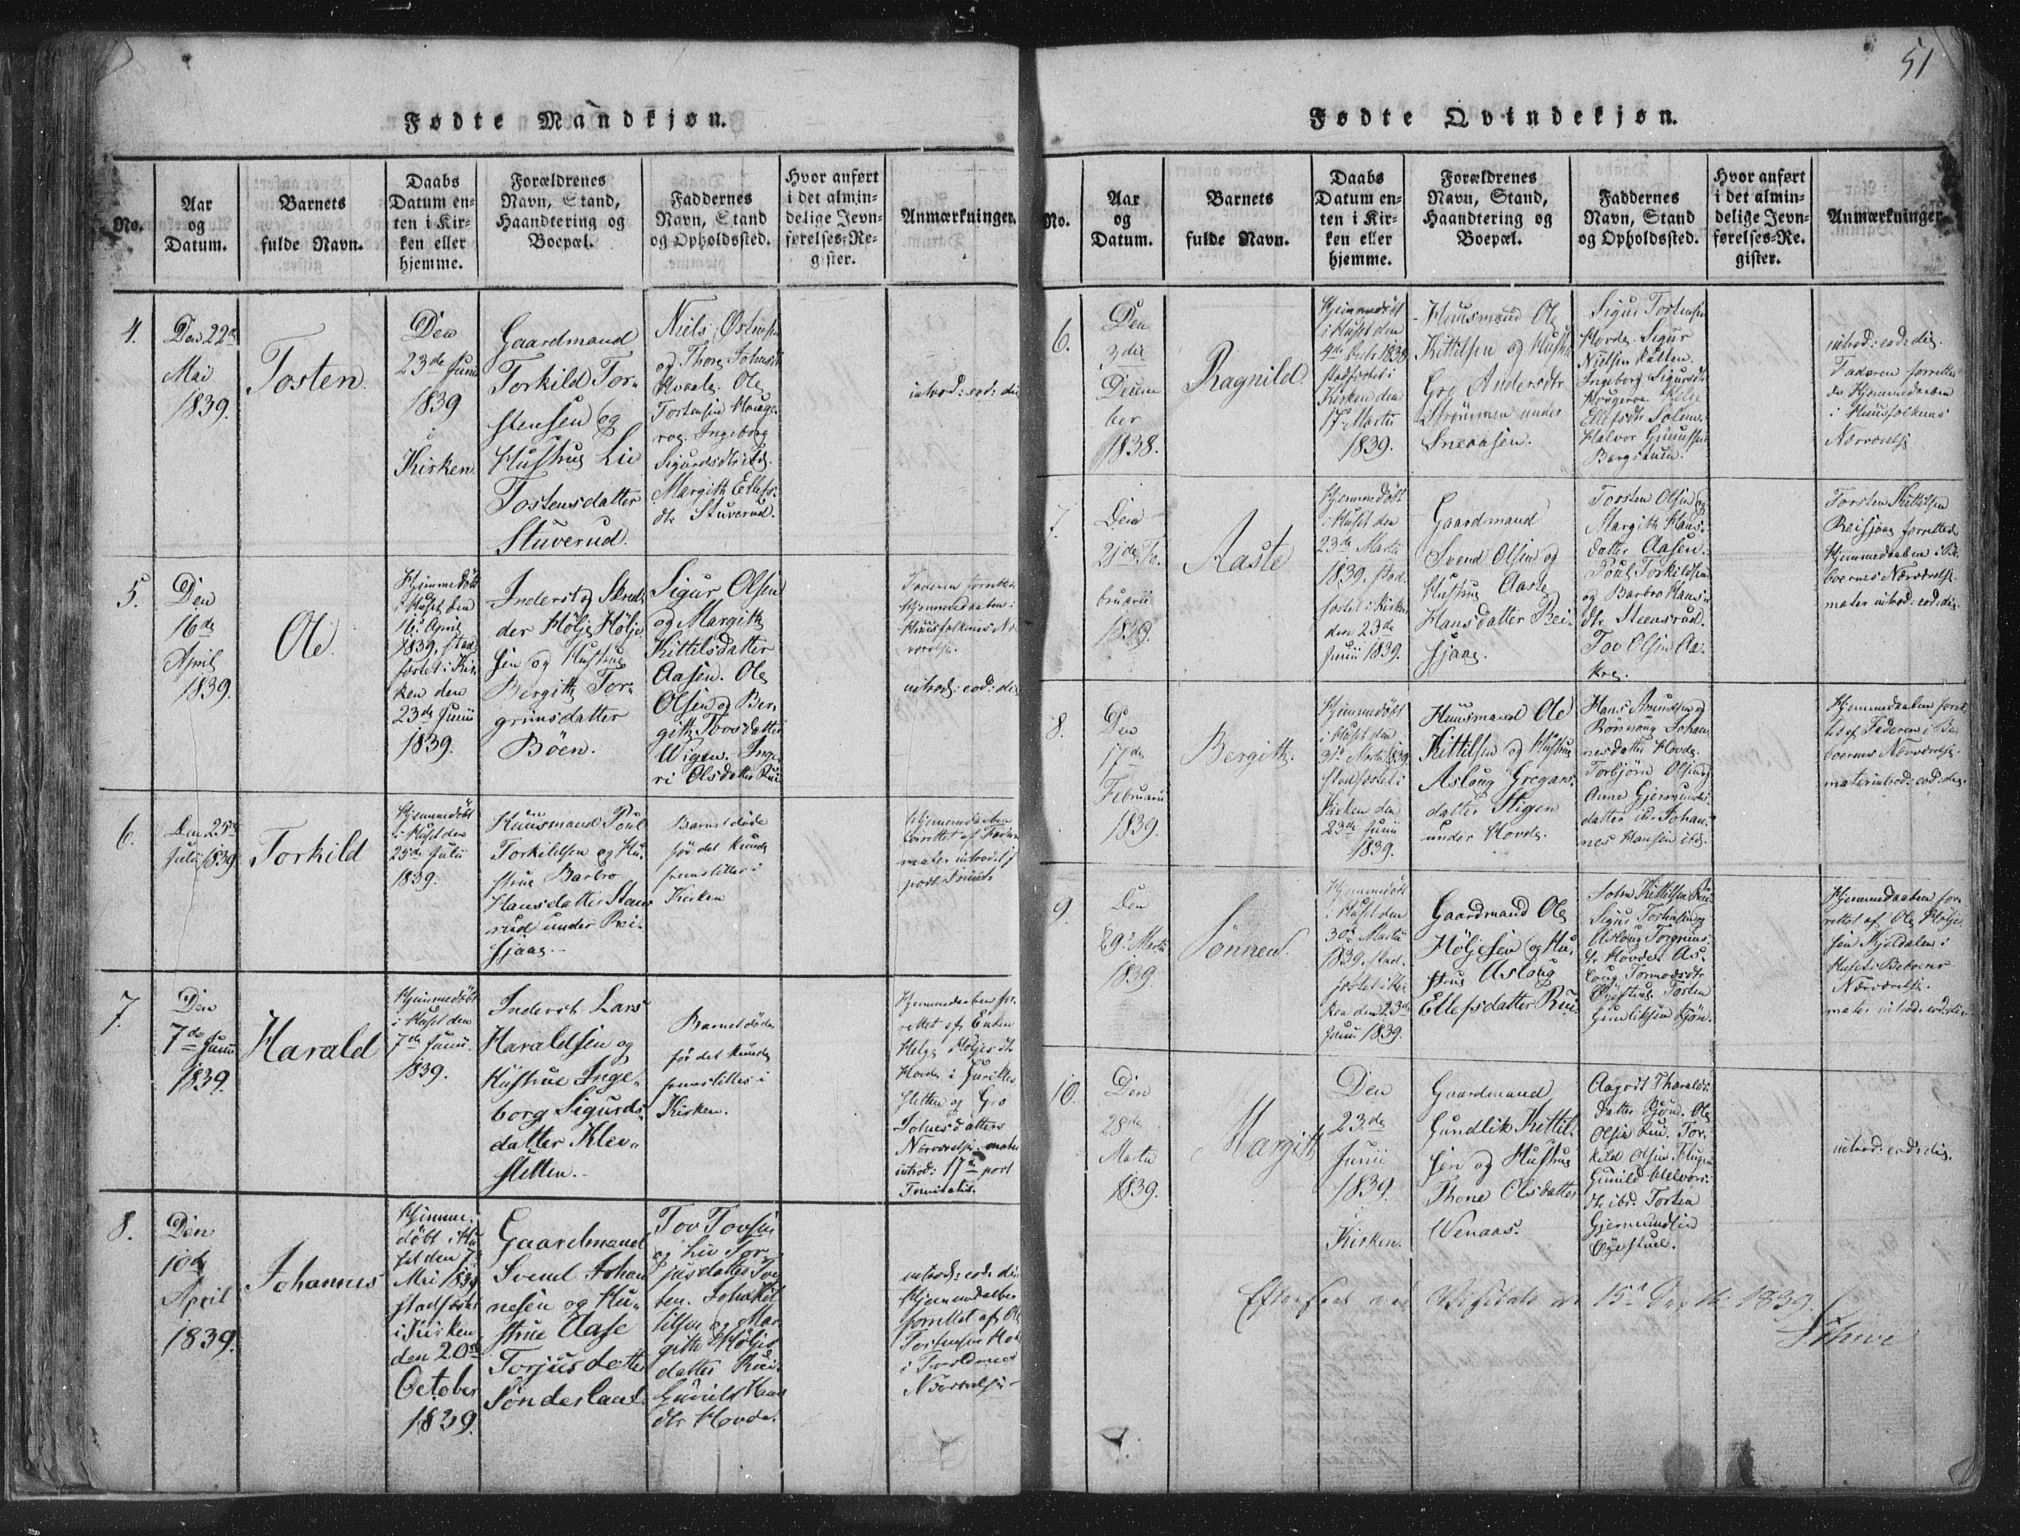 51
Fødte Mandkjøn.
No.
Aar
og
Datum.
Barnets
fulde Navn.
Daabs
Datum en-
ten i Kir-
ken eller
hjemme.
Forældrenes
Navn, Stand,
Haandtering og
Boepæl.
Faddernes
Navn, Stand
og Opholdssted.
Hvor anført
i det almin-
delige Jevn-
førelses-Re-
gister.
Anmærkninger.
4.
Den 22de
Mai
1839.
Tosten.
Den
23de Junii
1839
i
Kirken
Gaardmand
Torkild Tor-
stensen og
Hustrue Liv
Tostensdatter
Stuverud.
Niels Østensen
og Thore Johnsdtr
Ole
Tortensen Houge-
Ingeborg
Sigurdsdtr ibid.
Margith Ellefs-
dtr Stuverud.
introd: eod: die
5.
Den
16de
April
1839.
Ole.
Hjemmedøbt
i Huset den
16 April
1839, stad-
fæstet i Kir-
ken den
23de Junii
1839.
Inderst og Skred-
der Hølje Hølje-
sen og Hustrue
Bergith Tor-
grimsdatter
Bøen.
Sigur Olsen
og Margith
Kittilsdatter
Aasen. Ole
Olsen og Ber-
gith Tovsdatter
Wigen. Inge-
ri Olsdatter Rui
Faderen forrettet
Hjemmedaaben i
Huusfolkenes Nær-
værelse.
introd: eod: die
6.
Den 25de
Julii 1839.
Torkild
Hjemmedøbt
i Huset den
25de Julii
1839.
Huusmand Poul
Torkildsen og Hu-
strue Barbro
Hansdatter Stens-
rud under Rei-
sjaae.
Barnet døde
før det kunde
fremstilles i
Kirken
Hjemmedaaben
forrettet af Faderen
mater introd:
7.
Den
7de Junii
1839.
Harald
Hjemmedøbt
i Huset den
7de Junii
1839.
Inderst Lars
Haraldsen og
Hustrue Inge-
borg Sigurds-
datter Klev-
sletten.
Barnet døde
før det kunde
fremstilles i
Kirken.
Hjemmedaaben for-
rettet af Enken
Helge Høljesdtr
Hovde i
og Gro
Johnsdatters
Nærværelse. mater
introd: 17de post
Trinitatis.
8.
Den
10de
April
1839.
Johannes
Hjemme-
døbt i Hu-
set den 7de
Mai 1839
stadfæstet
i Kirken
den 20de
October
1839.
Gaardmand
Svend Johan-
nesen og Hu-
strue Aase
Torjusdatter
Sønderland.
Tov Tovsen
og Liv Tor-
jusdatter
John Kit-
tilsen og Mar-
gith Høljes-
datter Rui.
Gunild Hans-
dtr Hovde.
introd: eod: die
Hjemmedaaben
forrettet af Ole
Tostensen
i Forældrenes
Nærværelse
Fødte Qvindekjøn.
No.
Aar
og
Datum.
Barnets
fulde Navn.
Daabs
Datum en-
ten i Kir-
ken eller
hjemme.
Forældrenes
Navn, Stand,
Haandtering og
Boepæl.
Faddernes
Navn, Stand
og Opholdssted.
Hvor anført
i det almin-
delige Jevn-
førelses-Re-
gister.
Anmærkninger.
6.
Den
3die
Decem-
ber
1838.
Ragnild
Hjemmedøbt
i Huset den
stadfæstet i
Kirken den
17de Martii
1839.
Huusmand Ole
Kittilsen og Hustrue
Gro Andersdtr
Strømmen under
Sneaasen.
Sigur Tortensen
Hovde. Sigur
Nielsen
Ingeborg Sigursdtr
Ellefsdtr
Halvor Gunulfsen
introd: eod: die.
Faderen forrettet
Hjemmedaaben
i Huusfolkenes
Nærværelse
7.
Den
21de Fe-
bruarii
1839.
Aaste
Hjemmedøbt
i Huset den
23de Martii
1839. stad-
fæstet i Kirken
den 23de
Junii 1839.
Gaardmand
Svend Olsen og
Hustrue Aaste
Hansdatter Rei-
sjaae.
Torsten Olsen og
Margith Hans-
datter Aasen.
Poul Torkildsen
og Barbro Hans-
dtr Steensrud.
Tov Olsen Aa-
kre.
Torsten Kittilsen
Reisjaae forrettede
Hjemmedaaben i Be-
boernes Nærværelse
mater introd: eod: die
8.
Den
17de
Februarii
1839.
Bergith
Hjemmedøbt
i Huset den
31te Martii 1839
stadfæstet i
Kirken den
23de Junii
1839.
Huusmand Ole
Kittilsen og Hustrue
Asloug Gregars-
datter Stigen
under Hovde.
Hans Amundsen og
Rønnoug Johan-
nesdatter Hovde
Torbjørn Olsen og
Anne Gjermunds-
datter ibid. Johan-
nes Hansen ibid.
Hjemmedaaben forret-
tet af Faderen i Be-
boernes Nærværelse.
mater introd: eod: die.
9.
Den
9de Martii
1839.
Sønnev
Hjemmedøbt
i Huset den
30de Martii
1839. stad-
fæstet i Kir-
ken den 23de
Junii 1839.
Gaardmand Ole
Høljesen og Hu-
strue Asloug
Ellefsdatter Rui
John Kittilsen Rui
Sigur Tortensen og
Asloug Torgrims-
dtr Hovde. As-
loug Tormodsdtr
Øyestue. Torten
Gundliksen Bjøn.
Hjemmedaaben for-
rettet af Ole Hølje-
sen Mjeldalen i
Husets Beboeres
Nærværelse.
mater introd: eod: die
10.
Den
28de
Martii
1839.
Margith
Den
23de
Junii
1839.
i
Kirken.
Gaardmand
Gundlik Kittil-
sen og Hustrue
Thone Olsdatter
Wenaas.
Aagot Tharalds-
datter Bjøn. Ole
Olsen Rui. Tor-
kild Olsen
Gunild Halvors-
dtr ibd. Torten
Gjermundsen
Øyestuel.
introd: eod: die.
Efterseet ved Visitats d. 15de 1839.